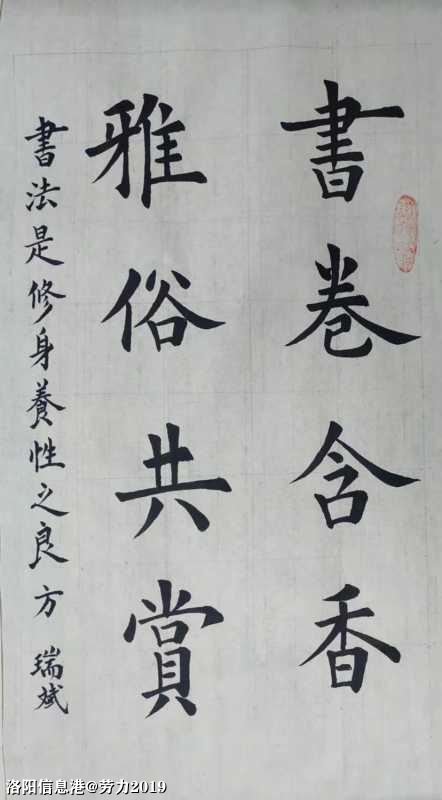 書卷含香
雅俗共賞
書法是修身養性之良方 瑞斌
洛阳信息港@劳力2019